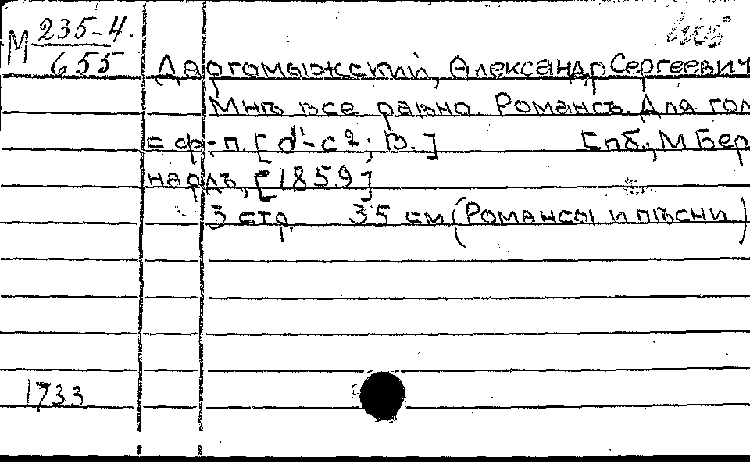 М 235-4.
655
Даргомыжский, Александр Сергеевич
Мнѣ все равно. Романсъ. Для гол
= ф-п. [d¹-c²; В.] Спб., М Бер
нардъ, [1859]
3 стр 35 см (Романсы и пѣсни)
1733